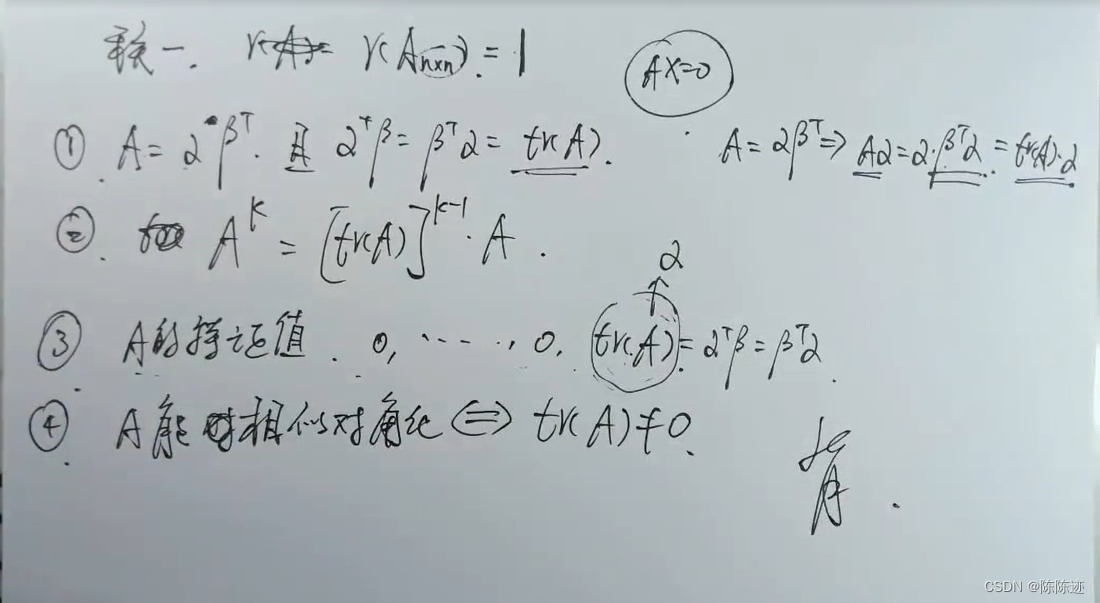 秩一. r(A_{n×n}) = 1
AX=0
① A = αβ^T. 且 α^Tβ = β^Tα = tr(A).
A = αβ^T ⇒ Aα = α·β^Tα = tr(A)·α
② A^k = [tr(A)]^{k-1}·A.
α
↑
③ A的特征值. 0, ……, 0. tr(A) = α^Tβ = β^Tα.
④ A能相似对角化 ⇔ tr(A) ≠ 0.
CSDN @陈陈迹